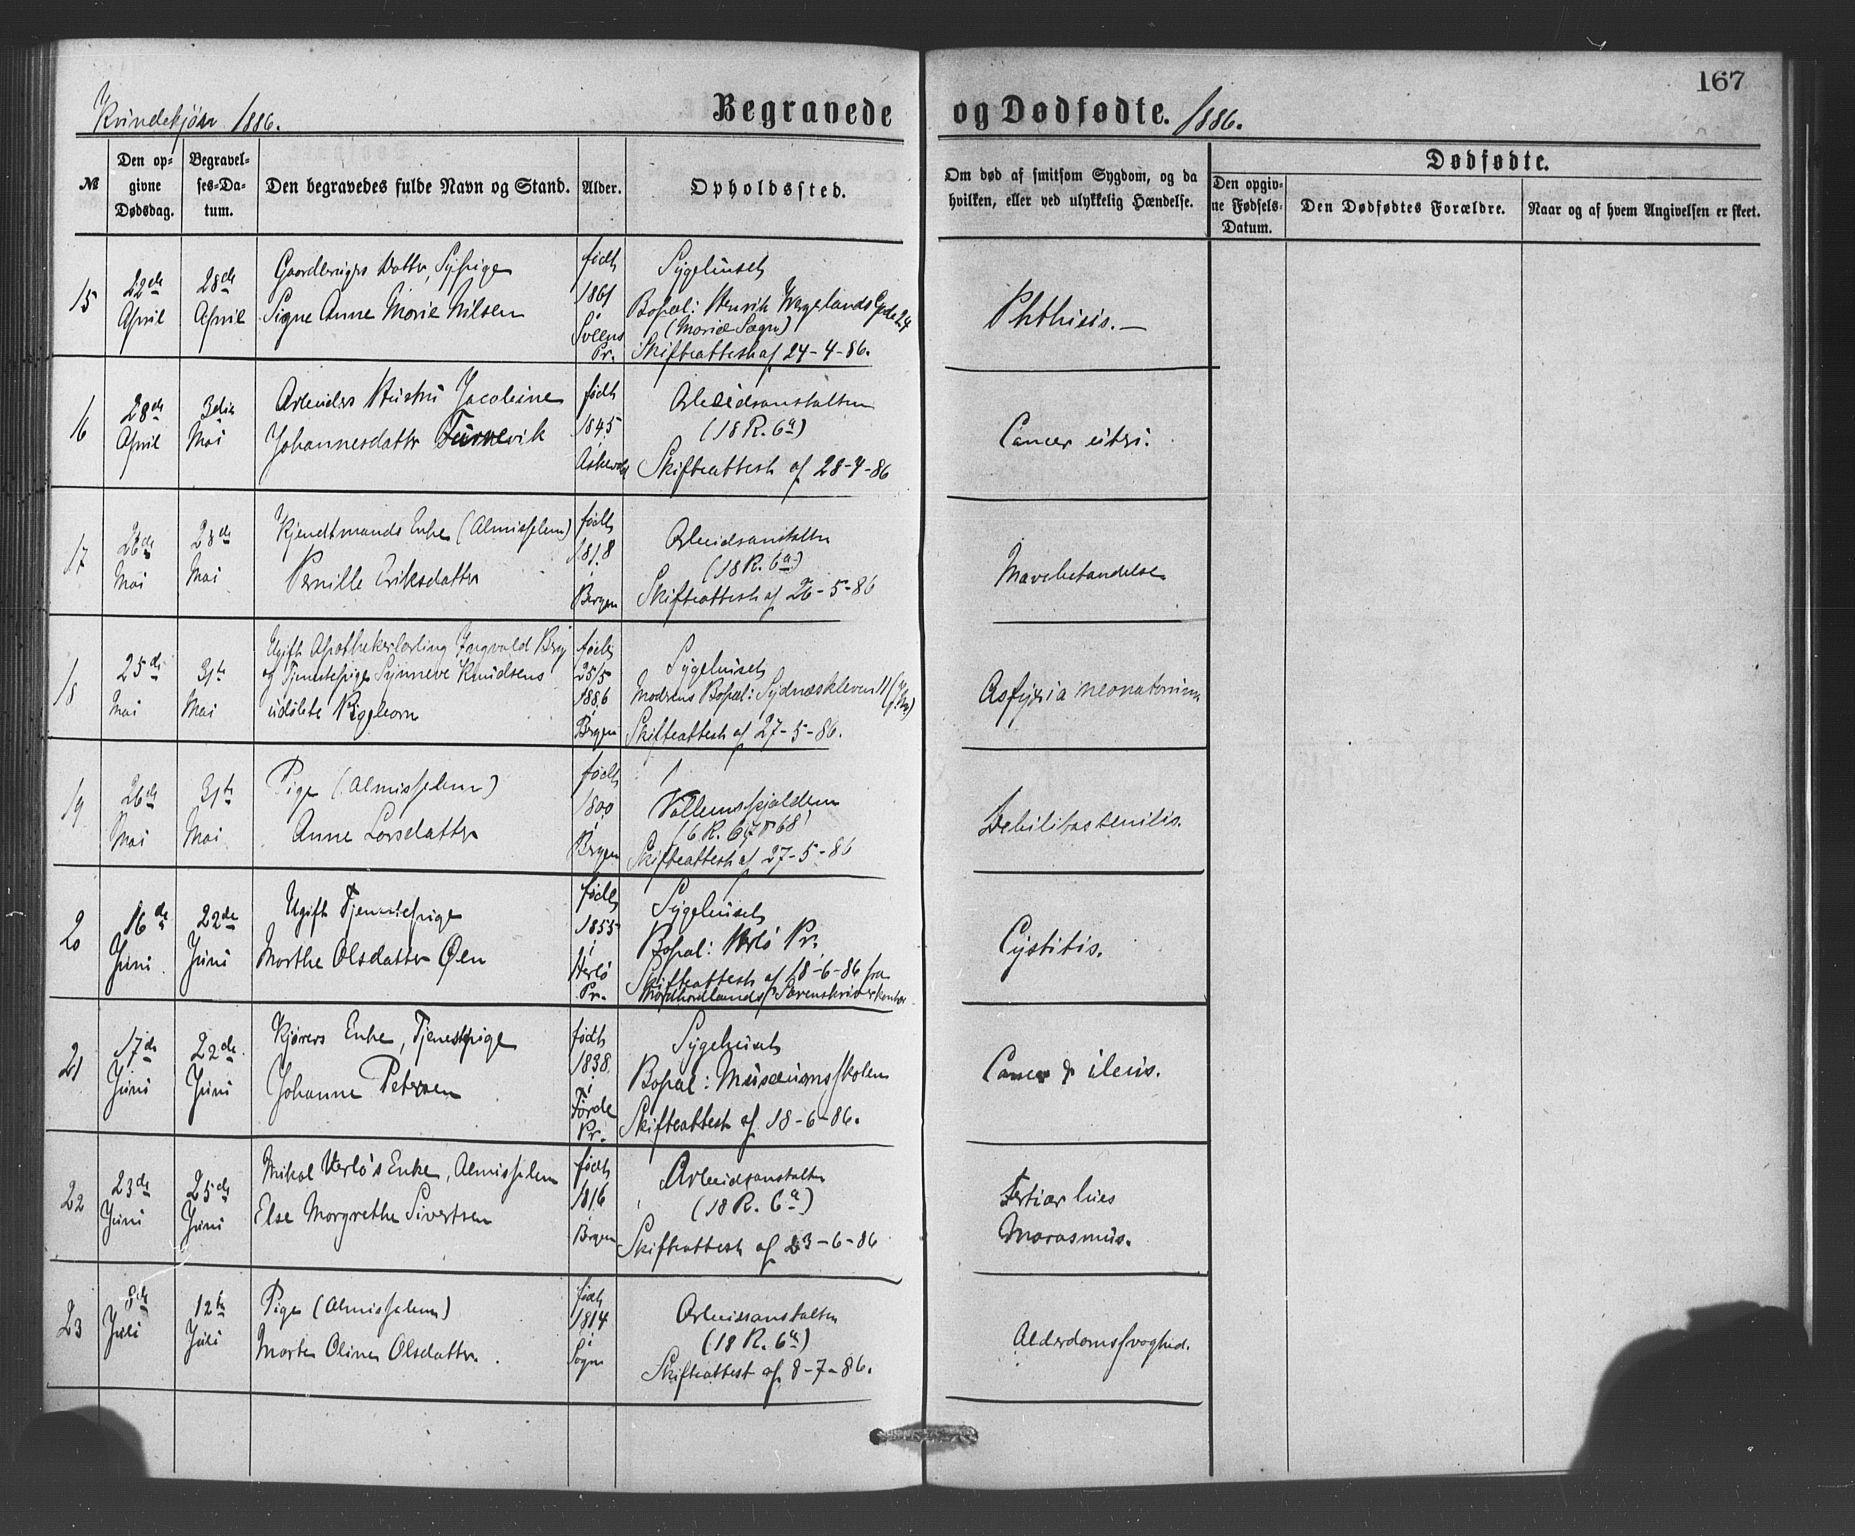 167
Kvindekjøn 1886.
Begravede og Dødfødte. 1886.
№
Den op-
givne
Dødsdag.
Begravel-
ses-Da-
tum.
Den begravedes fulde Navn og Stand.
Alder.
Opholdssted.
Om død af smitsom Sygdom, og da
hvilken, eller ved ulykkelig Hændelse.
Dødfødte.
Den opgiv-
ne Fødsels-
Datum.
Den Dødfødtes Forældre.
Naar og af hvem Angivelsen er skeet.
15
22de
April
28de
April
Gaardbrugers Datter, Sypige
Signe Anne Marie Nilsen
født
1861
i
Pr.
Sygehuset
Bopæl: Henrik Wergelands Gade 24
(Mariæ Sogn)
Skifteattest af 24-4-86.
Phthisis.
16
28de
April
3die
Mai
Arbeiders Hustru Jacobine
Johannesdatter
født
1845
i
Askevold
Arbeidsanstalten
(18 R. 6a)
Skifteattest af 28-4-86
Cancer uteri.
17
26de
Mai
28de
Mai
Enke (Almisselem)
Pernille Eriksdatter
født
1818
i
Bergen
Arbeidsanstalten
(18 R. 6a)
Skifteattest af 26-5-86
Mavebetændelse
18
25de
Mai
31te
Mai
Ugift Apothekerlærling Ingvald Berg
og Tjenestepige Synneve Knudsens
udøbte Pigebarn
født
25/5
1886
i
Bergen
Sygehuset
Moderens Bopæl: Sydnæskleven 11
Skifteattest af 27-5-86.
Asfyxia neonatorum
19
26de
Mai
31te
Mai
Pige (Almisselem)
Anne Larsdatter
født
1800
i
Bergen
(6 R. 67 & 68)
Skifteattest af 27-5-86
Debilitas senilis.
20
16de
Juni
22de
Juni
Ugift Tjenestepige
Marthe Olsdatter Øen
født
1855
i
Herlø
Pr.
Sygehuset
Bopæl: Herlø Pr.
Skifteattest af 18-6-86 fra
Nordhordlands Sorenskriverkontor
Cystitis.
21
17de
Juni
22de
Juni
Kjørers Enke, Tjenestpige
Johanne Petersen
født
1838
i
Førde
Pr.
Sygehuset
Bopæl: Museumsskolen
Skifteattest af 18-6-86.
Cancer & ileus.
22
23de
Juni
25de
Juni
Mikal Herlø's Enke, Almisselem
Else Margrethe Sivertsen
født
1816
i
Bergen
Arbeidsanstalten
(18 R. 6a)
Skifteattest af 23-6-86
Tertiær lues
Marasmus.
23
8de
Juli
12te
Juli
Pige (Almisselem)
Marte Oline Olsdatter.
født
1814
i
Sogn
Arbeidsanstalten
(18 R. 6a)
Skifteattest af 8-7-86.
Alderdomssvaghed.